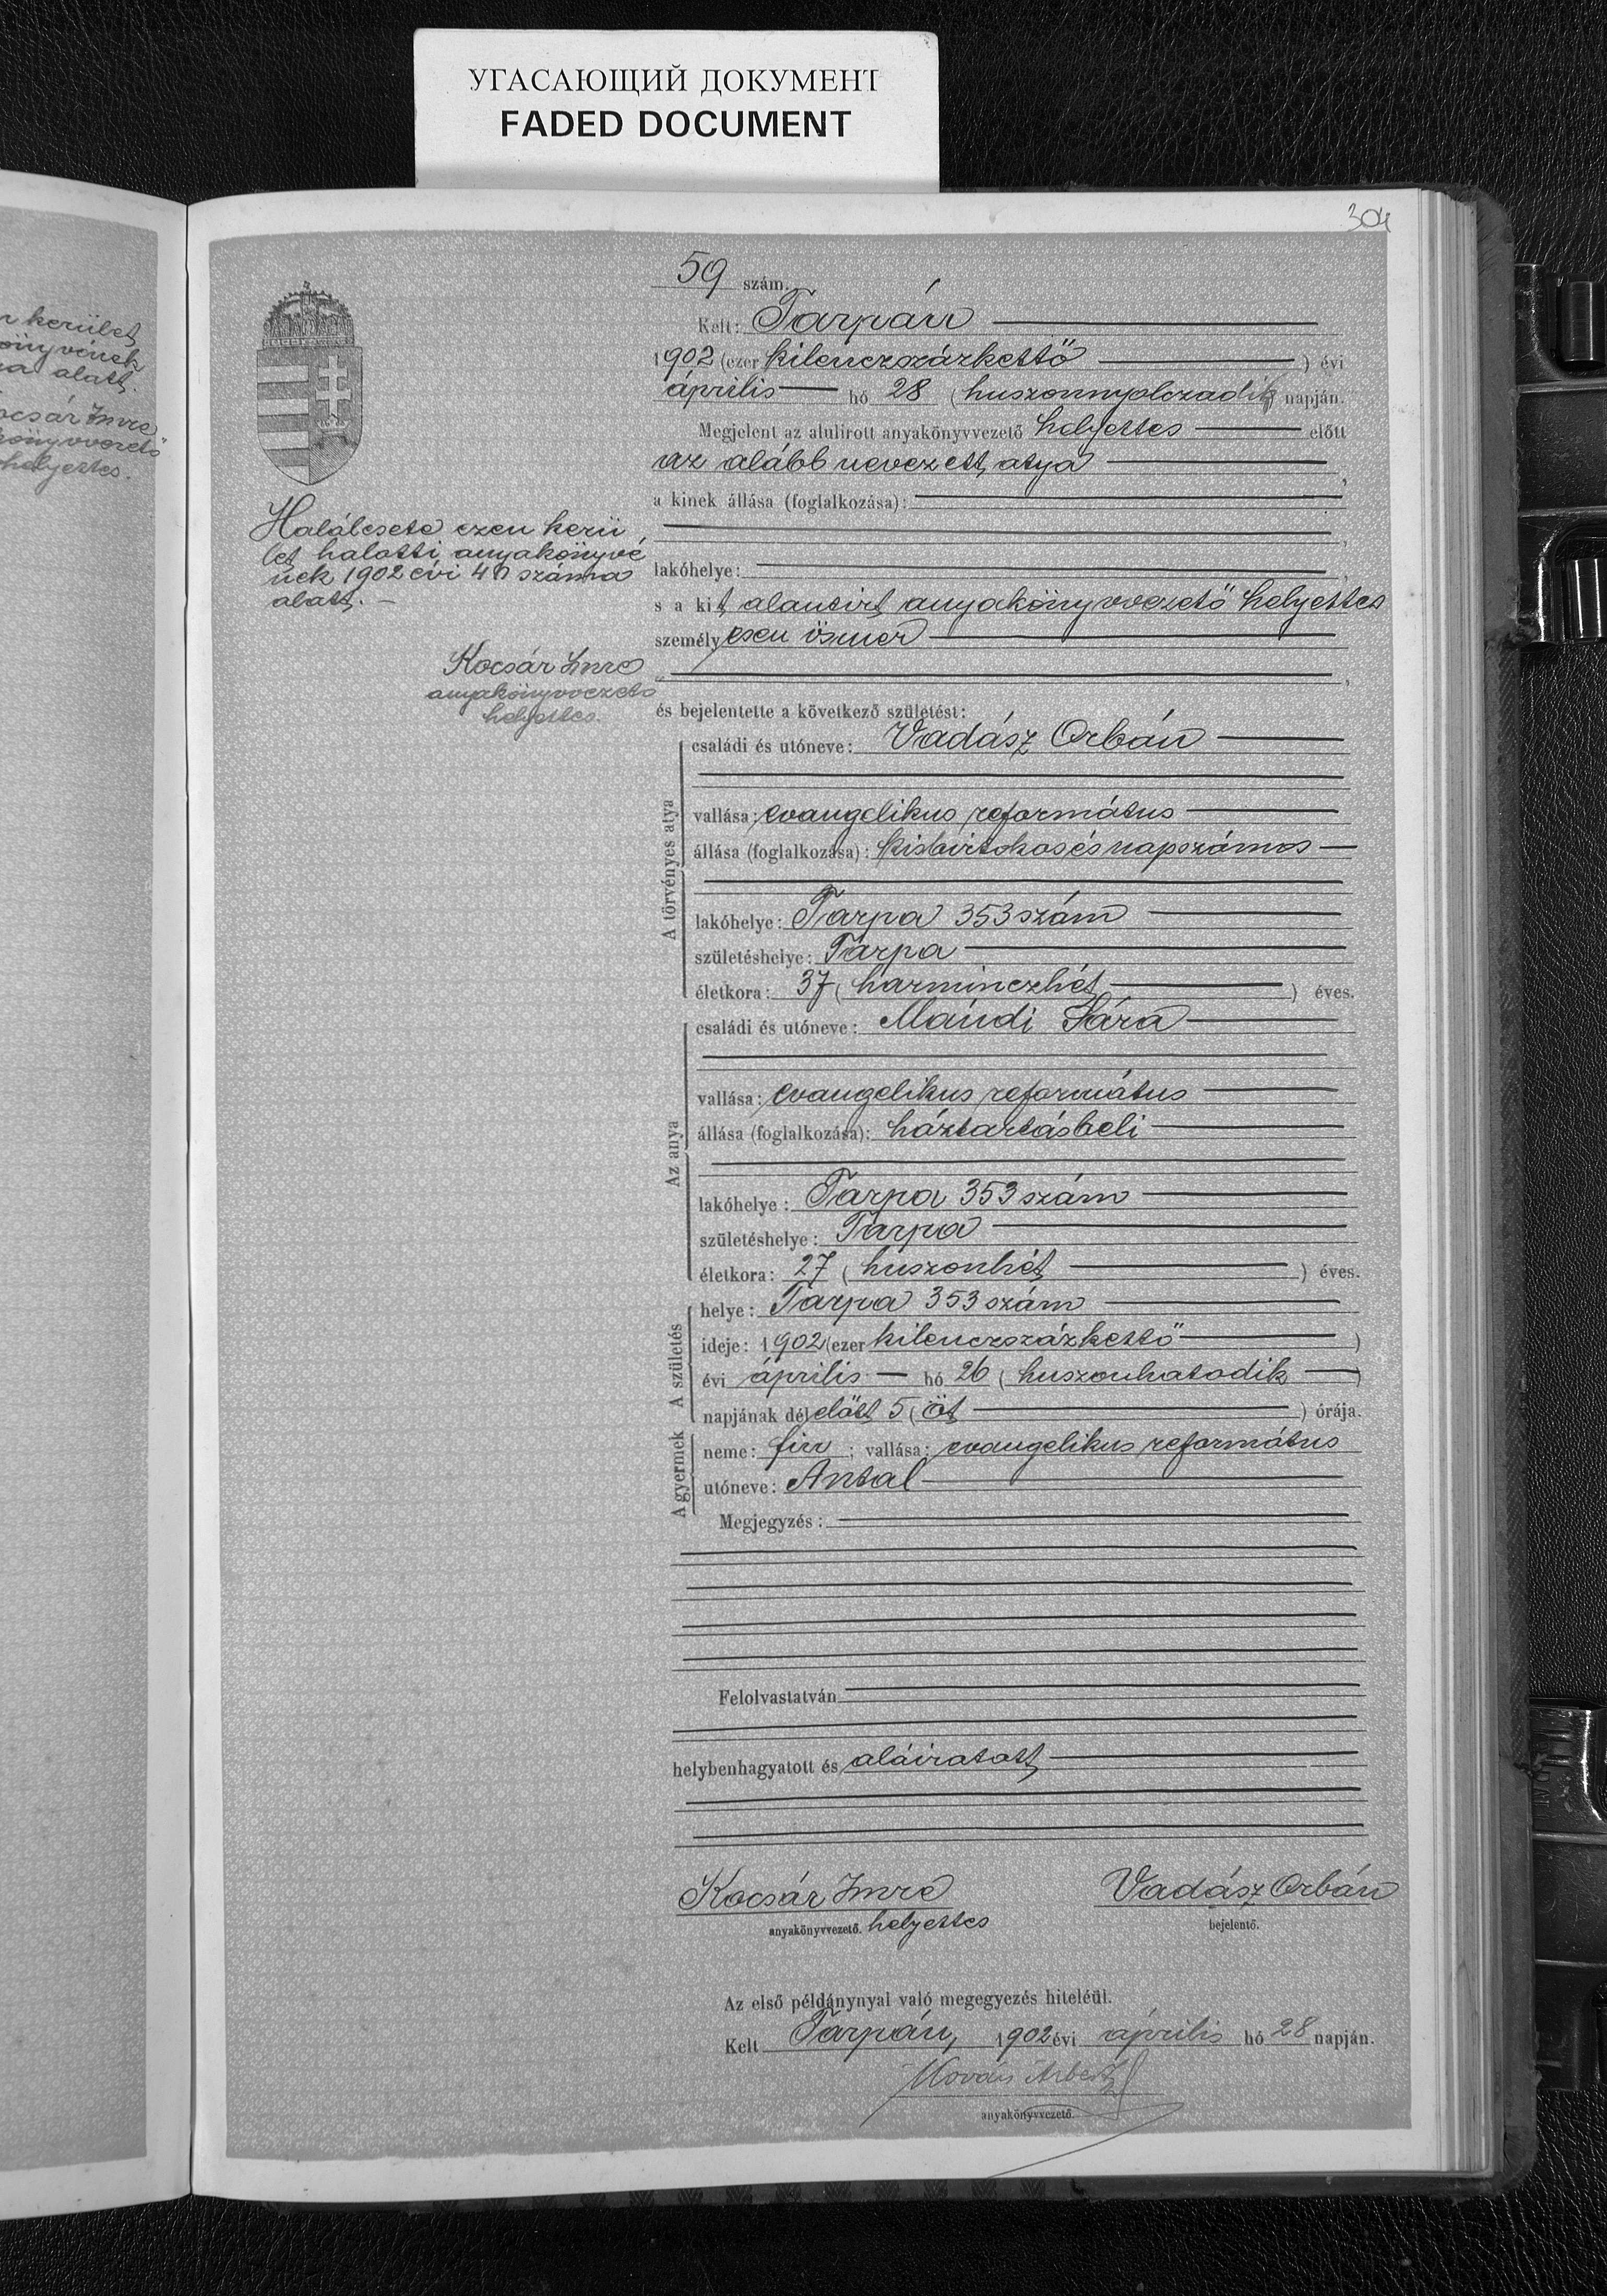 УГАСАЮЩИЙ ДОКУМЕНТ
FADED DOCUMENT
304
r kerület
könyvének
alatt.
Kocsár Imre
könyvvezető
helyettes.
59 szám.
Kelt: Tarpán
1902 (ezer kilenczszázkettő) évi
április hó 28 (huszonnyolczadik napján.
Megjelent az alulirott anyakönyvvezető helyettes előtt
az alább nevezett atya,
a kinek állása (foglalkozása):
lakóhelye:
s a kit alantirt anyakönyvvezető helyettes
személyesen ösmer
és bejelentette a következő születést:
Halálesete ezen kerü
let halotti anyakönyvé
nek 1902 évi száma
alatt. —
Kocsár Imre
anyakönyvvezető
helyettes.
A törvényes atya
családi és utóneve: Vadász Orbán
vallása: evangelikus református
állása (foglalkozása): kisbirtokos és napszámos
lakóhelye: Tarpa 353 szám
születéshelye: Tarpa
életkora: 37 (harminczhét) éves.
Az anya
családi és utóneve: Mándi Sára
vallása: evangelikus református
állása (foglalkozása): háztartásbeli
lakóhelye: Tarpa 353 szám
születéshelye: Tarpa
életkora: 27 (huszonhét) éves.
A születés
helye: Tarpa 353 szám
ideje: 1902 (ezer kilenczszázkettő)
évi április hó 26 (huszonhatodik)
napjának délelőtt 5 (öt) órája.
A gyermek
neme: fiu; vallása: evangelikus református
utóneve: Antal
Megjegyzés:
Felolvastatván
helybenhagyatott és aláiratott
Kocsár Imre Vadász Orbán
anyakönyvvezető. helyettes bejelentő.
Az első példánynyal való megegyezés hiteléül.
Kelt Tarpán, 1902 évi április hó 28 napján.
anyakönyvvezető.